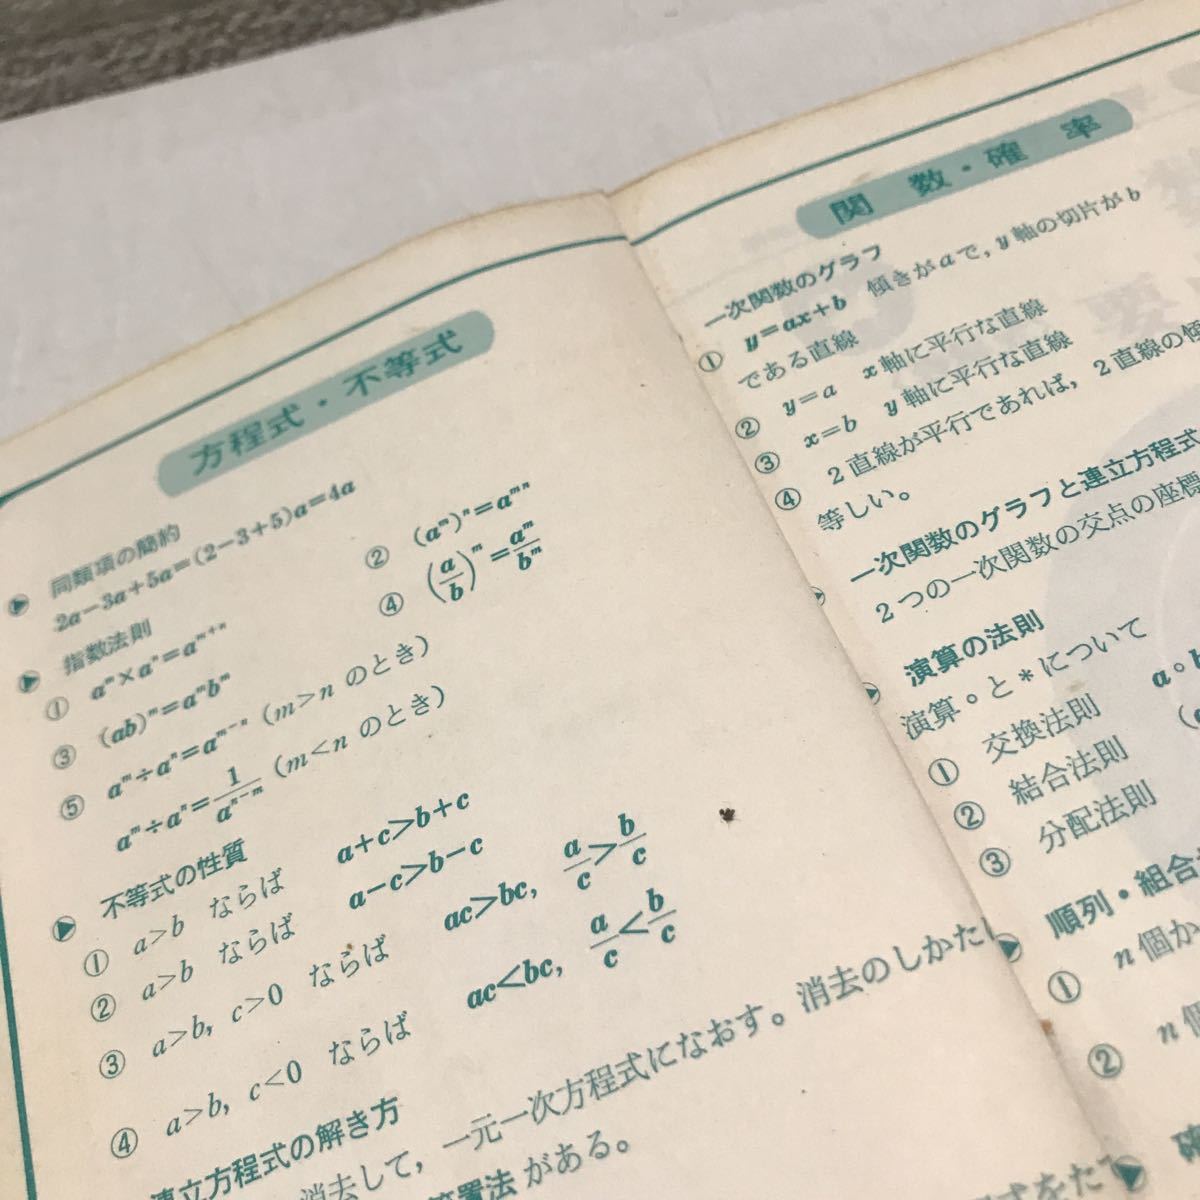 方程式・不等式
同類項の簡約
2a−3a+5a=(2−3+5)a=4a
指数法則
① aᵐ×aⁿ=aᵐ⁺ⁿ ② (aᵐ)ⁿ=aᵐⁿ
③ (ab)ᵐ=aᵐbᵐ ④ (a/b)ᵐ=aᵐ/bᵐ
⑤ aᵐ÷aⁿ=aᵐ⁻ⁿ (m>n のとき)
aᵐ÷aⁿ=1/aⁿ⁻ᵐ (m<n のとき)
不等式の性質
① a>b ならば a+c>b+c
② a>b ならば a−c>b−c
③ a>b, c>0 ならば ac>bc, a/c>b/c
④ a>b, c<0 ならば ac<bc, a/c<b/c
連立方程式の解き方
消去して，一元一次方程式になおす。消去のしかたに
置法がある。
関数・確率
一次関数のグラフ
① y=ax+b 傾きがaで，y軸の切片がb
である直線
② y=a x軸に平行な直線
③ x=b y軸に平行な直線
④ 2直線が平行であれば，2直線の
等しい。
一次関数のグラフと連立方程式
2つの一次関数の交点の座標
演算の法則
演算∘と*について
① 交換法則 a∘b
② 結合法則
③ 分配法則
順列・組合
① n個か
② n個
確